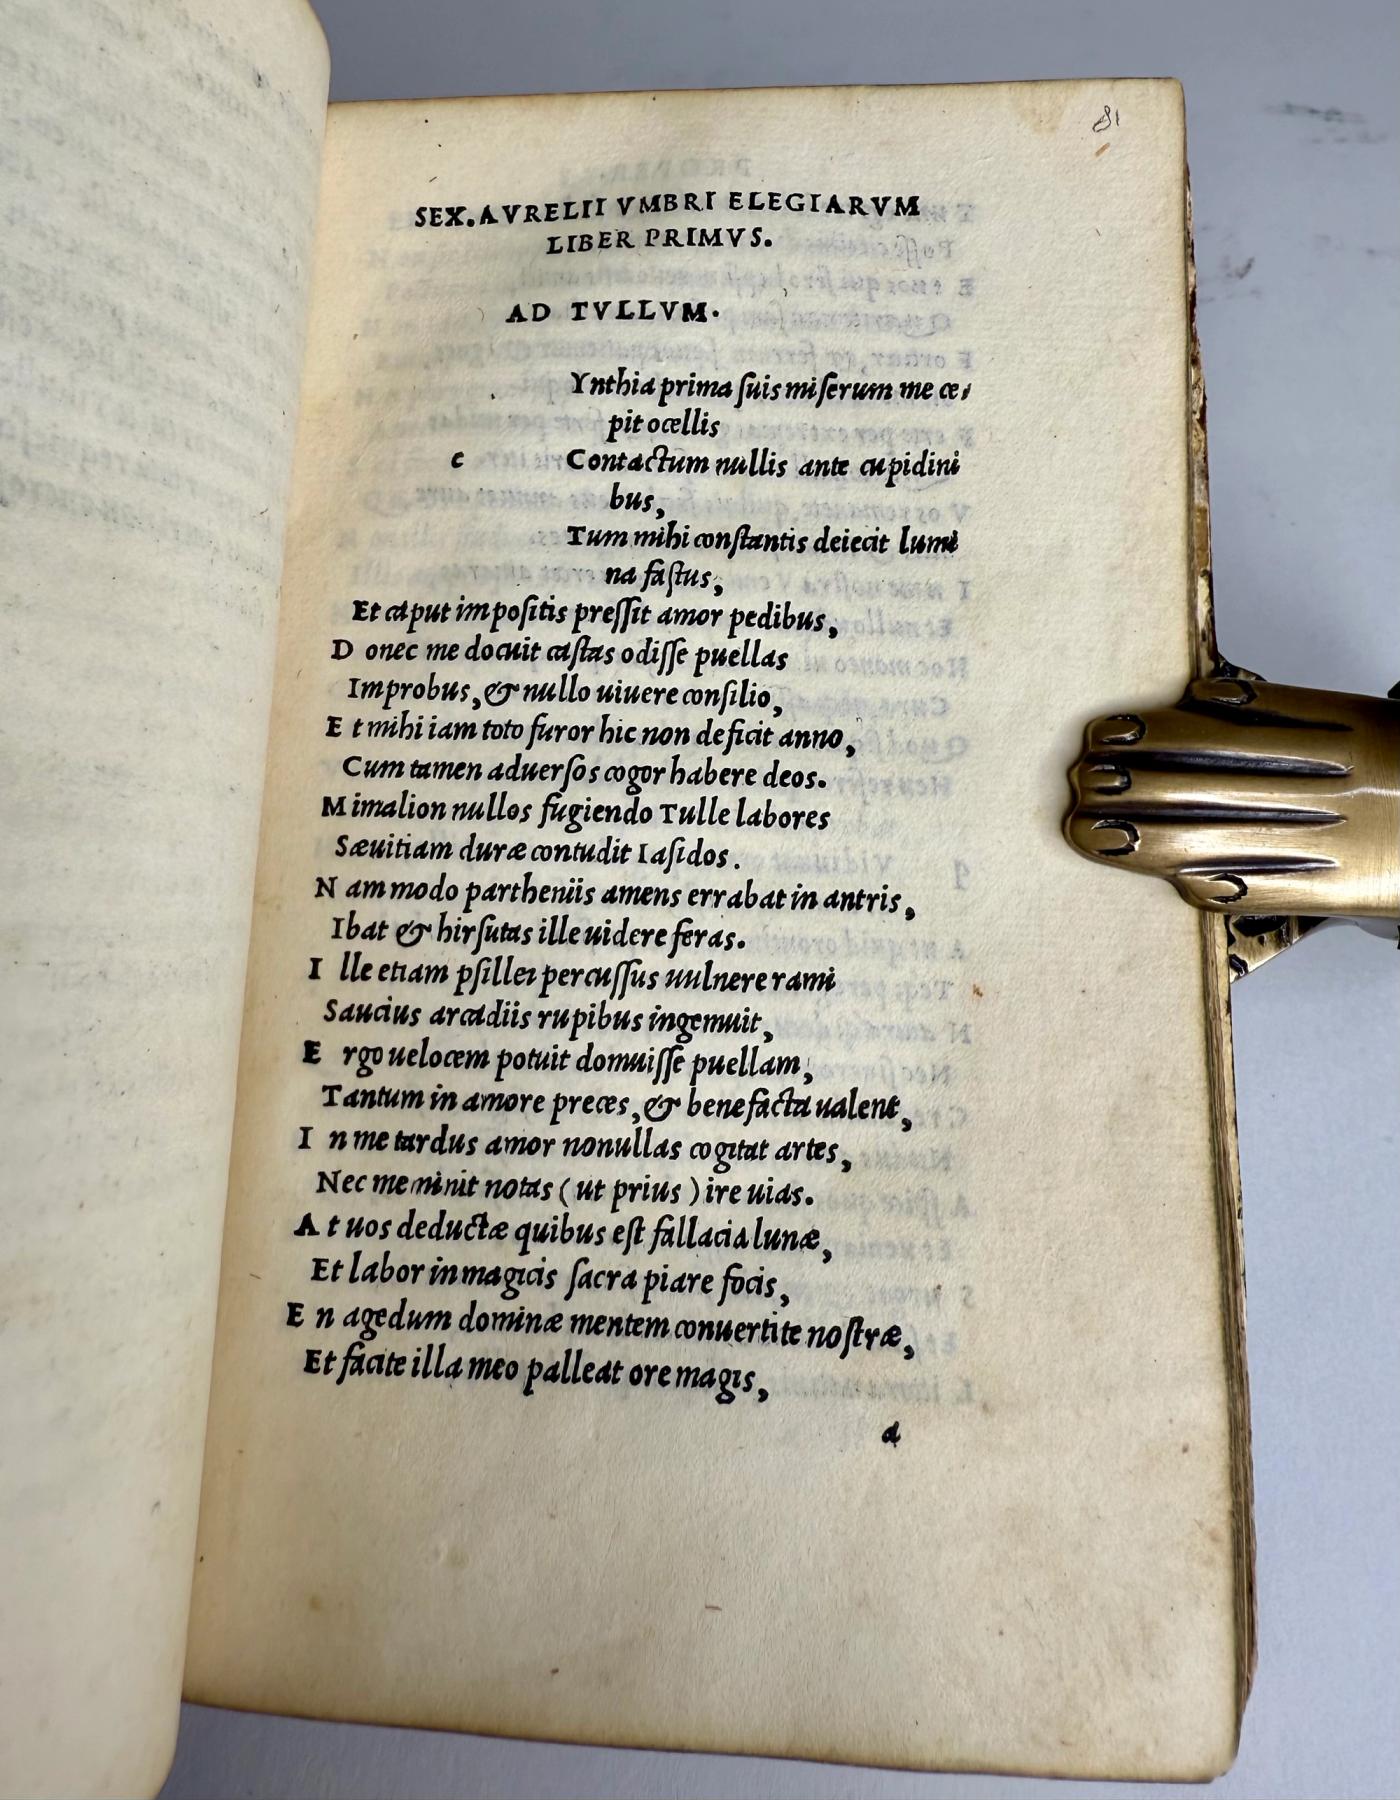 81
SEX. AVRELII VMBRI ELEGIARVM
LIBER PRIMVS.
AD TVLLVM.
Ynthia prima ſuis miſerum me ce,
pit ocellis
c Contactum nullis ante cupidini
bus,
Tum mihi conſtantis deiecit lumi
na faſtus,
Et caput impoſitis preſſit amor pedibus,
D onec me docuit caſtas odiſſe puellas
Improbus, & nullo uiuere conſilio,
E t mihi iam toto furor hic non deficit anno,
Cum tamen aduerſos cogor habere deos.
M imalion nullos fugiendo Tulle labores
Sæuitiam duræ contudit Iaſidos.
N am modo partheniis amens errabat in antris,
Ibat & hirſutas ille uidere feras.
I lle etiam pſillei percuſſus uulnere rami
Saucius arcadiis rupibus ingemuit,
E rgo uelocem potuit domuiſſe puellam,
Tantum in amore preces, & benefacta ualent,
I n me tardus amor nonullas cogitat artes,
Nec meminit notas (ut prius) ire uias.
A t uos deductæ quibus eſt fallacia lunæ,
Et labor in magicis ſacra piare focis,
E n agedum dominæ mentem conuertite noſtræ,
Et facite illa meo palleat ore magis,
a